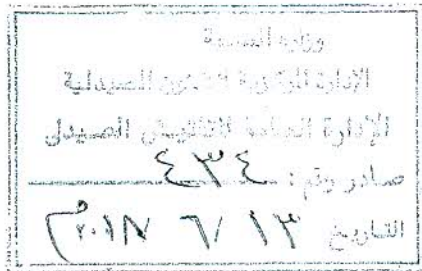 وزارة الصحة
الإدارة المركزية للشئون الصيدلية
الإدارة العامة للتفتيش الصيدلى
صادر رقم : ٤٣٤
التاريخ ١٣ / ٦ / ٢٠١٨م